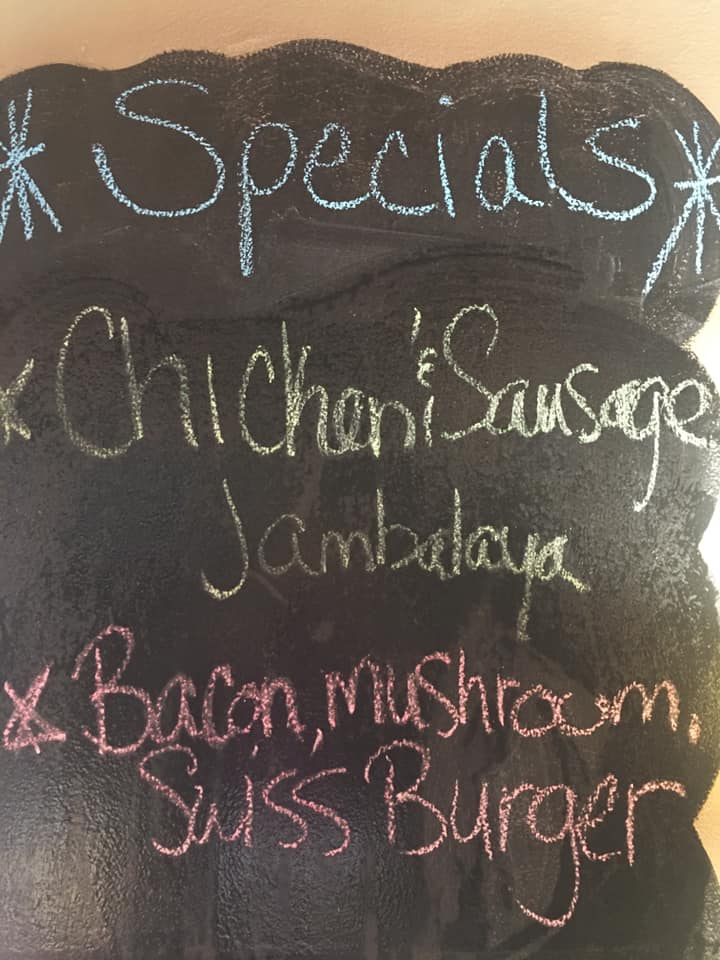 * Specials *
* Chicken & Sausage
Jambalaya
* Bacon, mushroom,
Swiss Burger